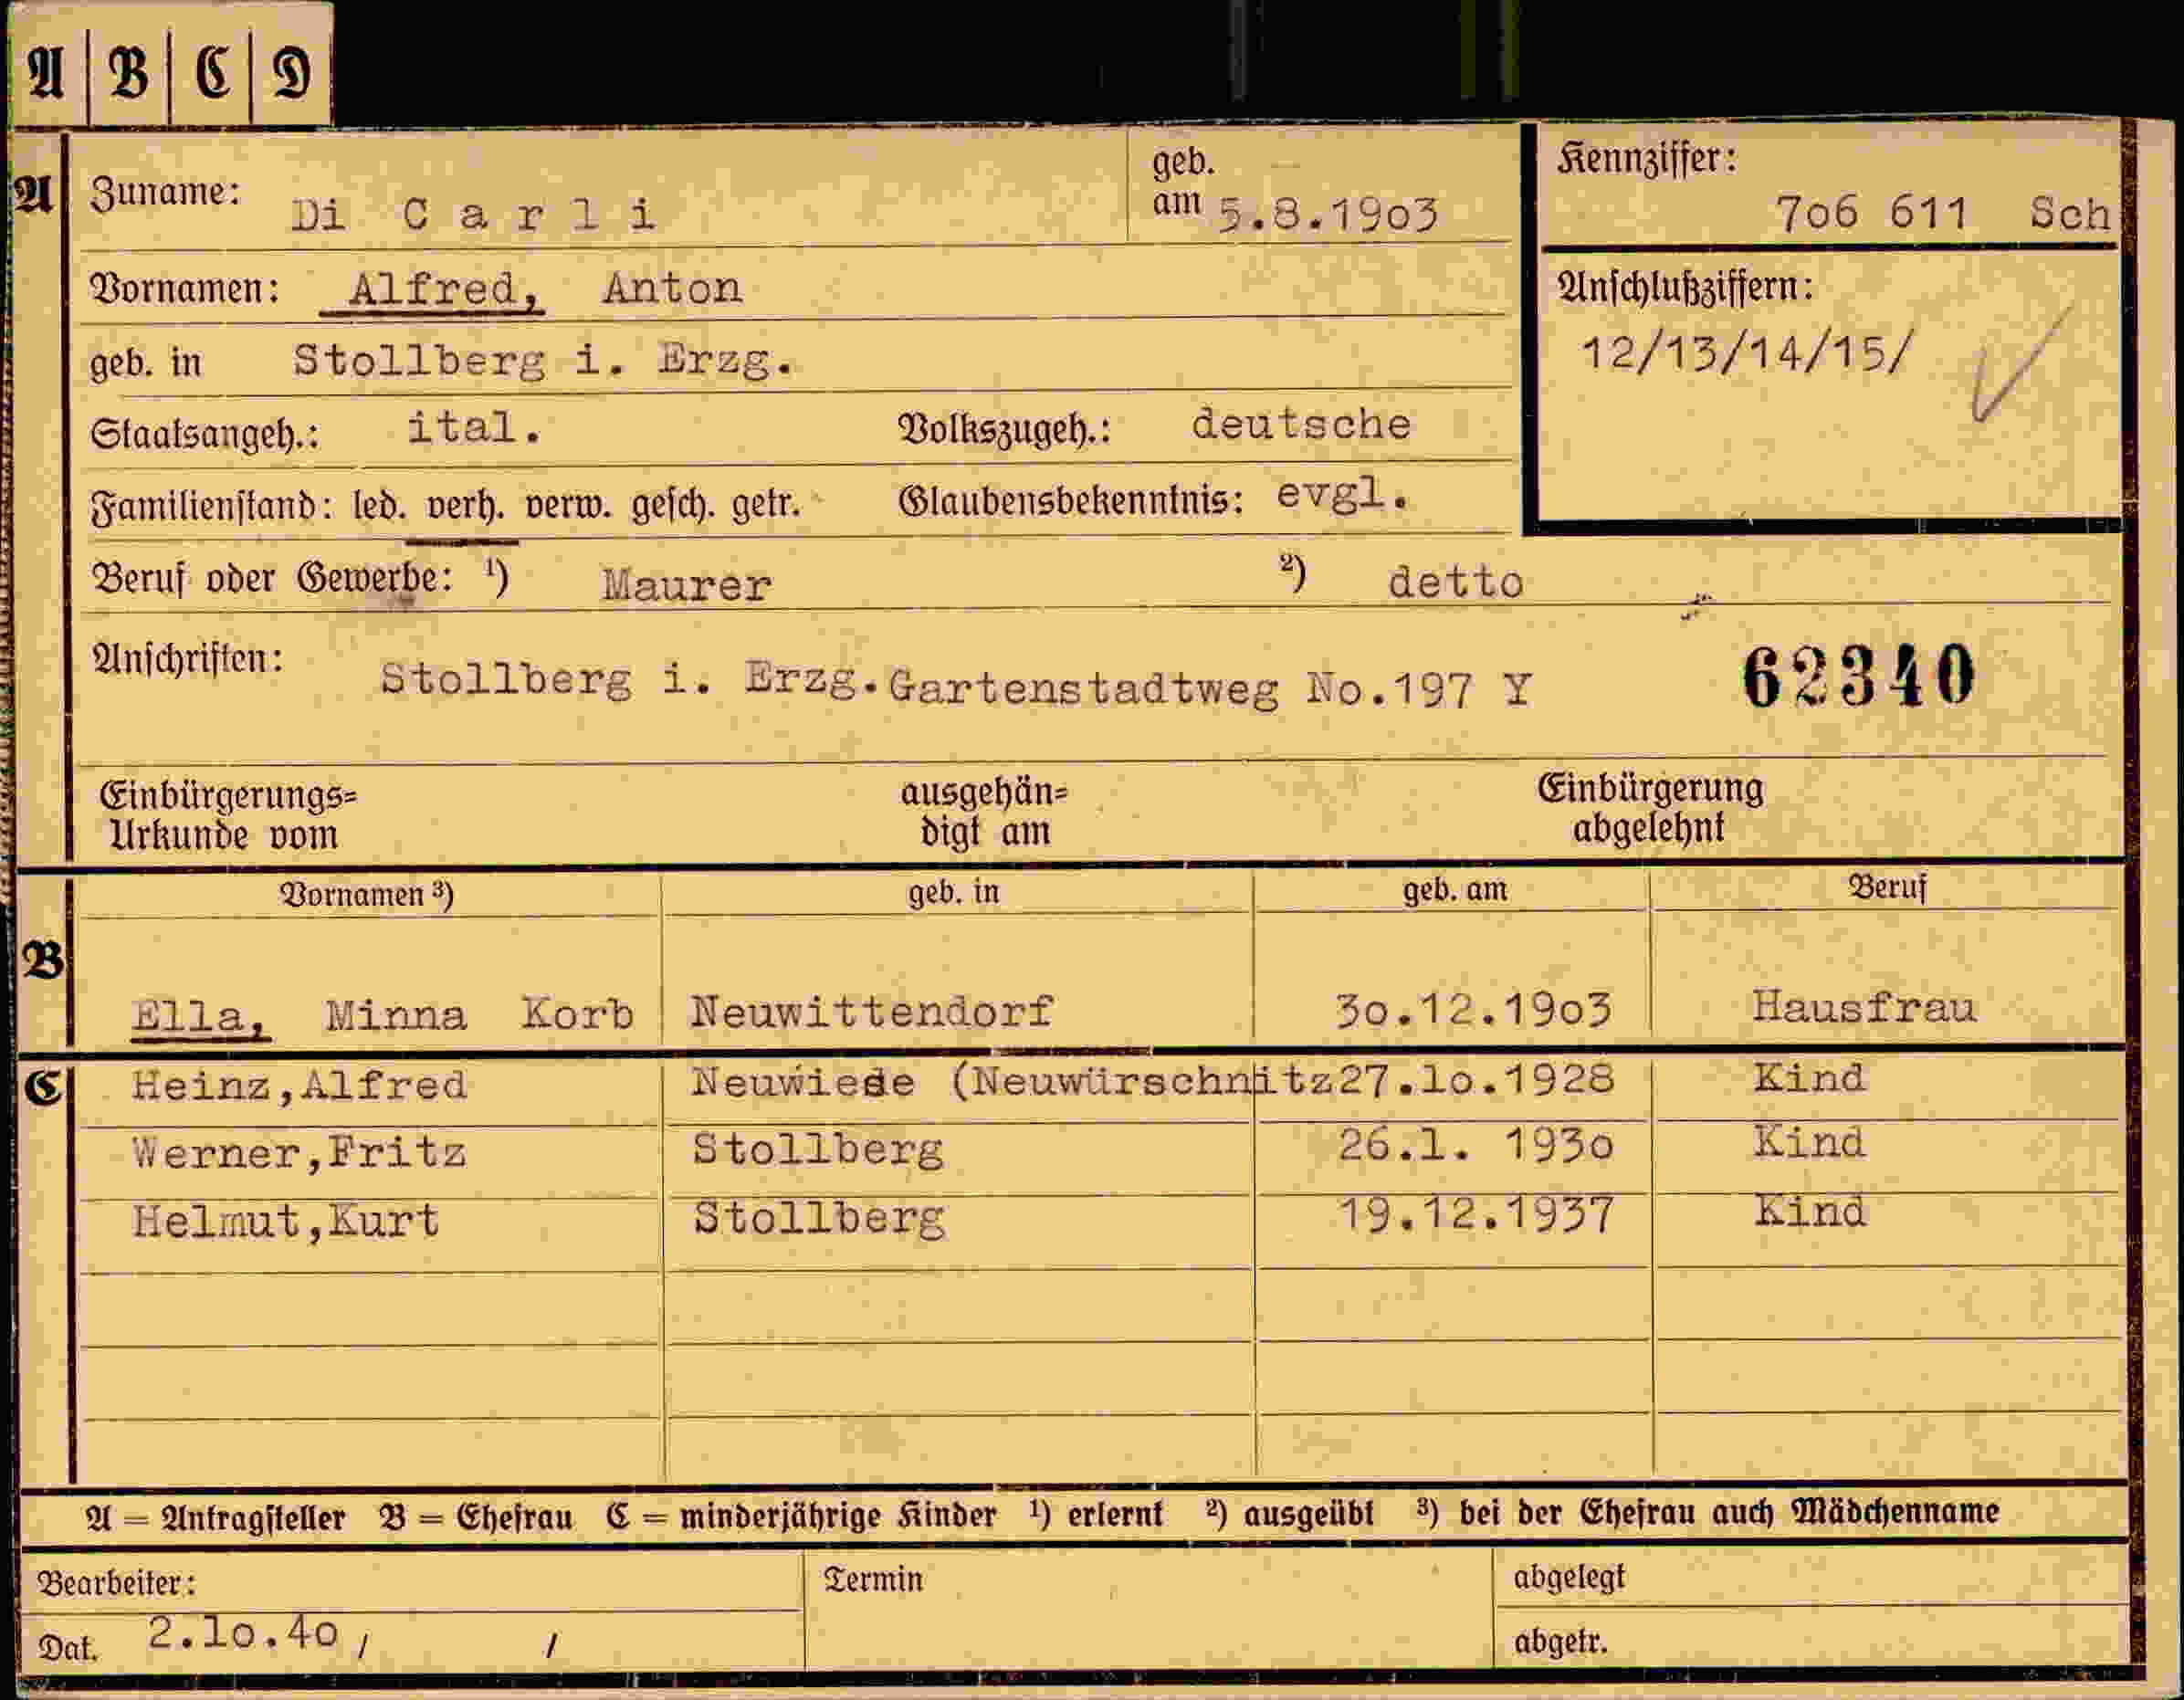 A B C D
A Zuname: Di Carli geb. am 5.8.19o3 Kennziffer: 7o6 611 Sch
Vornamen: Alfred, Anton Anschlußziffern:
12/13/14/15/
geb. in Stollberg i. Erzg.
Staatsangeh.: ital. Volkszugeh.: deutsche
Familienstand: led. verh. verw. gesch. getr. Glaubensbekenntnis: evgl.
Beruf oder Gewerbe: ¹) Maurer ²) detto
Anschriften: Stollberg i. Erzg. Gartenstadtweg No.197 Y 62340
Einbürgerungs= ausgehän= Einbürgerung
Urkunde vom digt am abgelehnt
Vornamen ³) geb. in geb. am Beruf
B Ella, Minna Korb Neuwittendorf 3o.12.19o3 Hausfrau
C Heinz,Alfred Neuwiese (Neuwürschnitz 27.1o.1928 Kind
Werner,Fritz Stollberg 26.1. 193o Kind
Helmut,Kurt Stollberg 19.12.1937 Kind
A = Antragsteller B = Ehefrau C = minderjährige Kinder ¹) erlernt ²) ausgeübt ³) bei der Ehefrau auch Mädchenname
Bearbeiter: Termin abgelegt
Dat. 2.1o.4o / / abgetr.